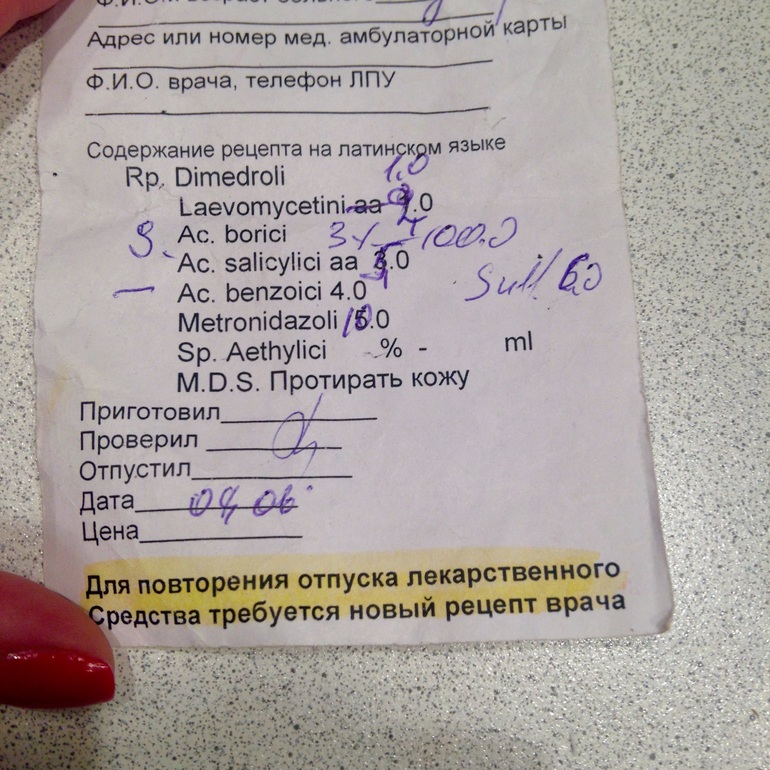 Адрес или номер мед. амбулаторной карты
Ф.И.О. врача, телефон ЛПУ
Содержание рецепта на латинском языке
1.0
Rp. Dimedroli
Laevomycetini aa .0
Ac. borici 3% 100.0
Ac. salicylici aa .0
Ac. benzoici 4.0
Metronidazoli .0
Sp. Aethylici % - ml
M.D.S. Протирать кожу
Приготовил
Проверил
Отпустил
Дата 04 06
Цена
Для повторения отпуска лекарственного
Средства требуется новый рецепт врача